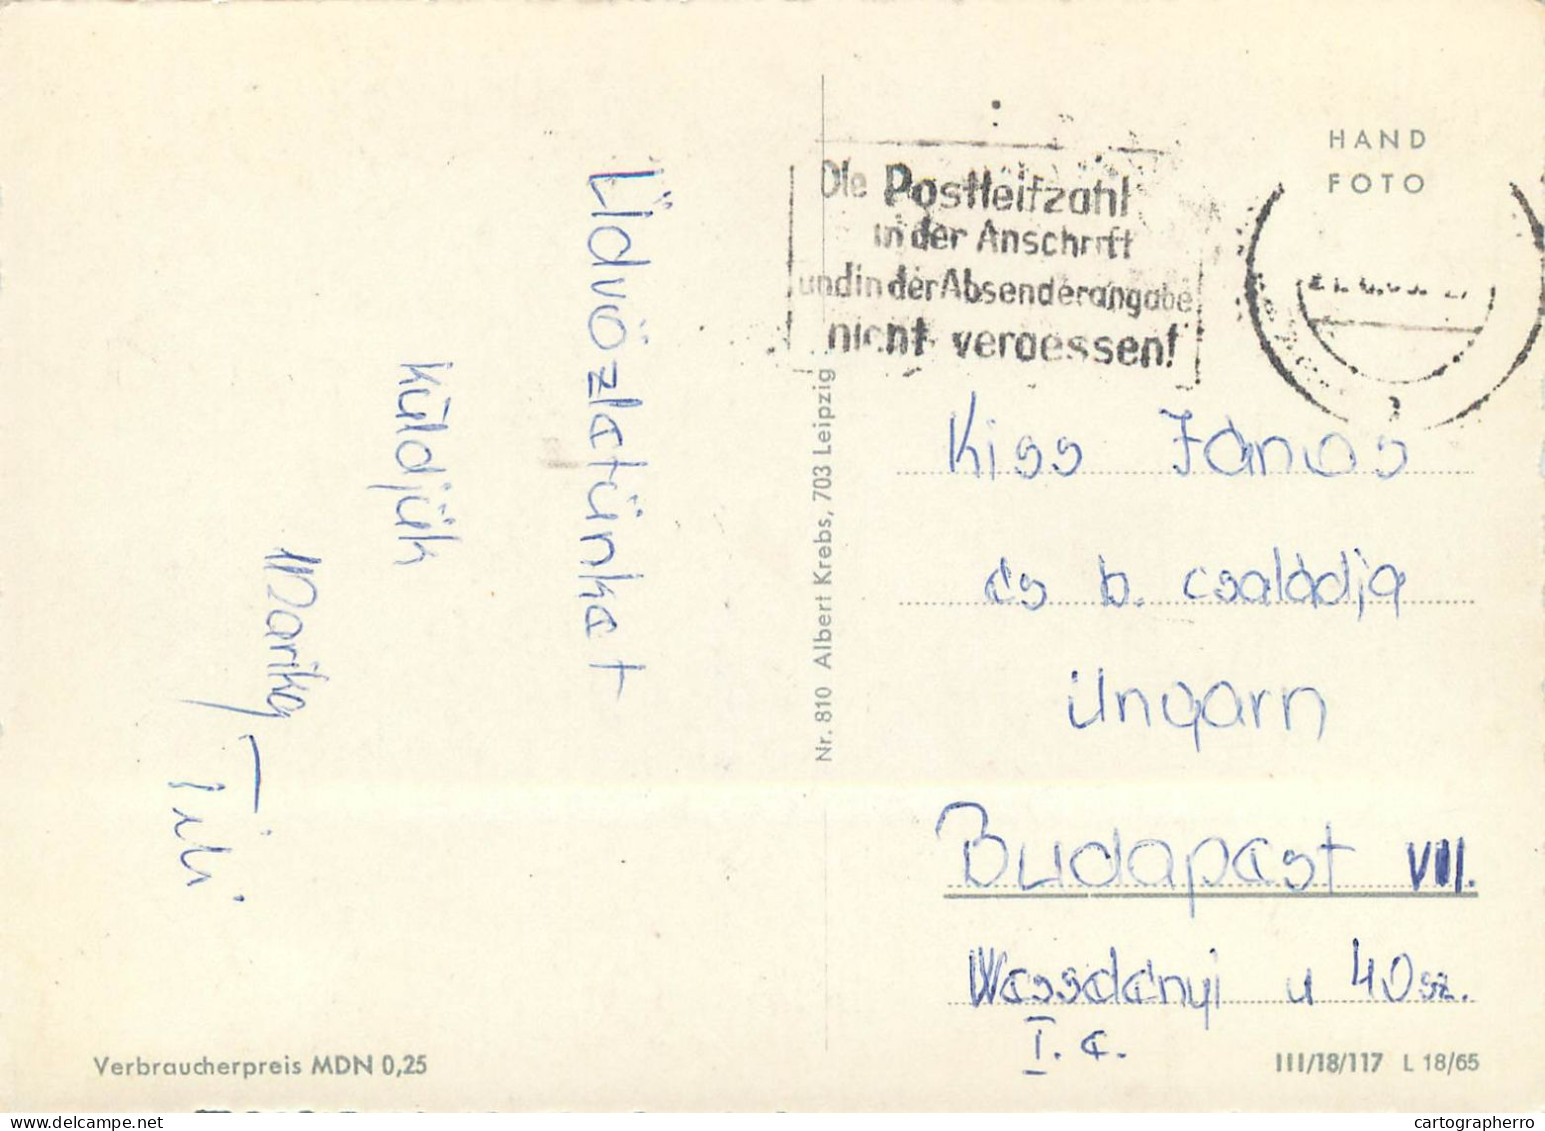 Üdvözletünket
küldjük
Marika
Tibi
Verbraucherpreis MDN 0,25
Nr. 810 Albert Krebs, 703 Leipzig
HAND
FOTO
Die Postleitzahl
in der Anschrift
und in der Absenderangabe
nicht vergessen!
Kiss János
és b. családja
Ungarn
Budapest VII.
Wassdányi u 40 sz.
I. e.
III/18/117 L 18/65
cartographerro